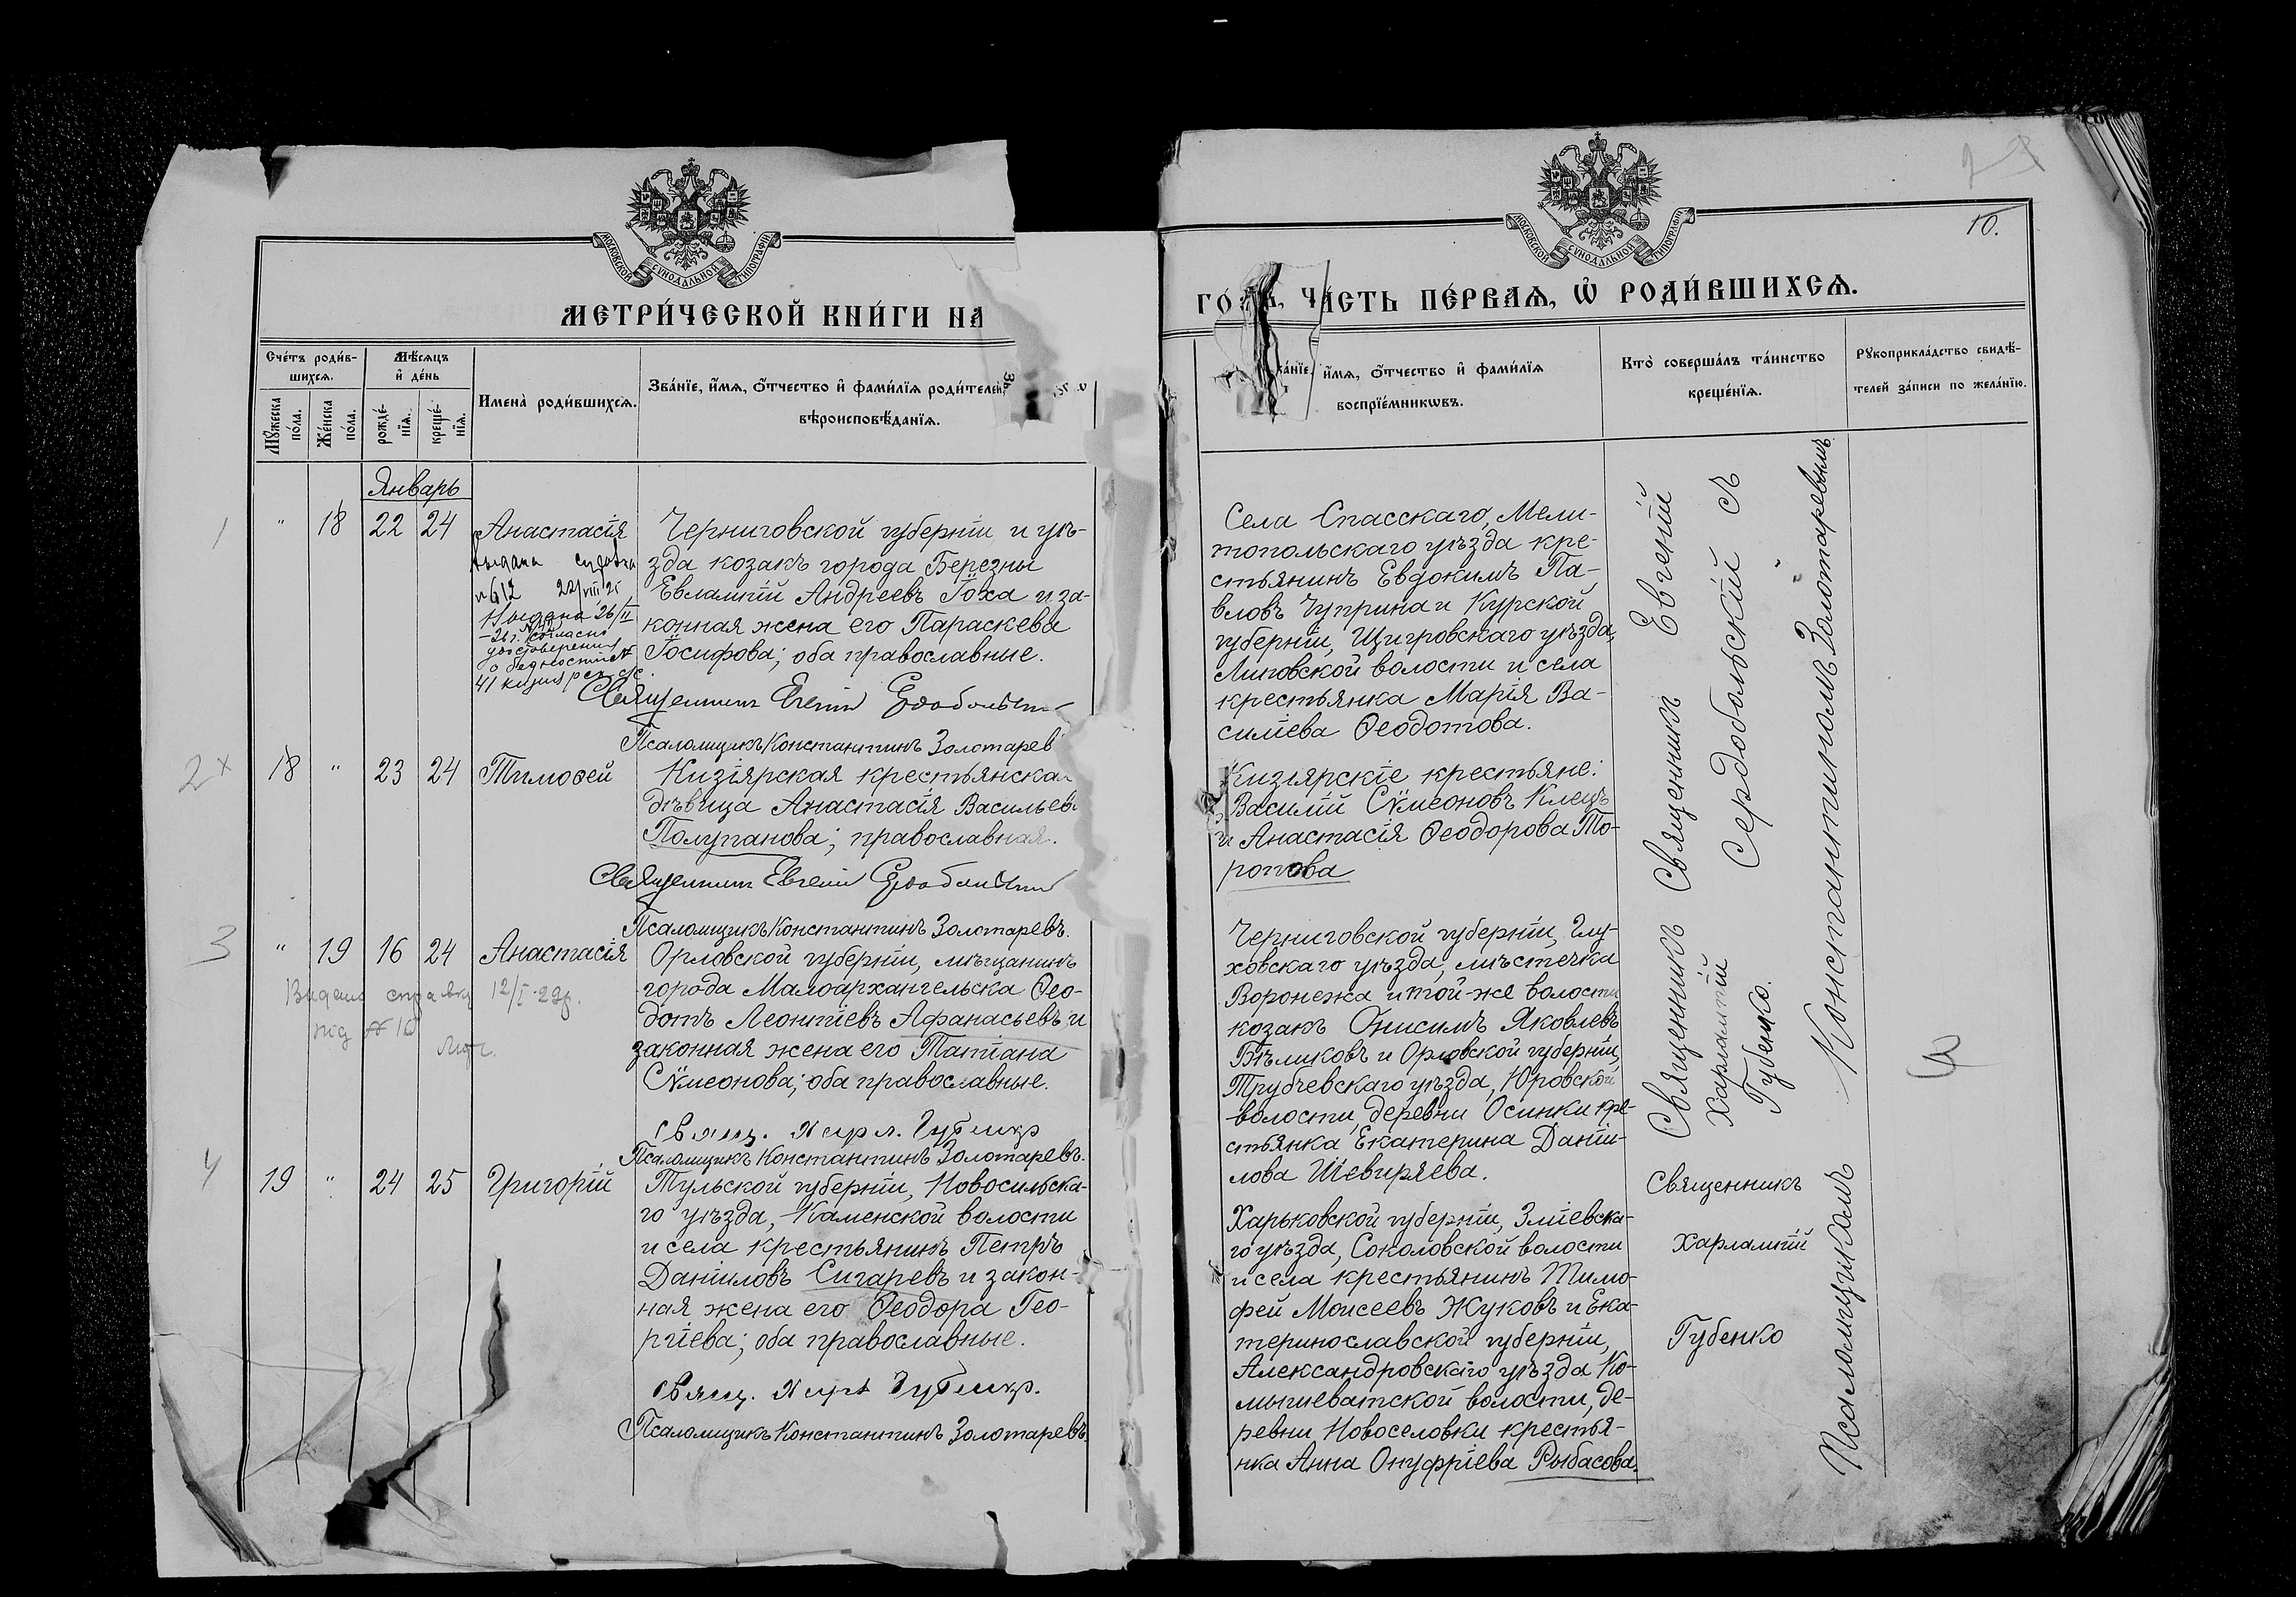 МОСКОВСКОЙ СУНОДАЛЬНОЙ ТИПОГРАФІИ
МЕТРИ́ЧЕСКОЙ КНИ́ГИ НА
Сче́тъ роди́в-
шихсѧ.
Мѣ́сѧцъ
и҆ де́нь
Мꙋ́жеска
по́ла.
Же́нска
по́ла.
рожде́-
нїѧ.
креще́-
нїѧ.
Имена̀ роди́вшихсѧ.
Зва́нїе, и҆́мѧ, ѻ҆́тчество и҆ фами́лїѧ роди́телей,
вѣроисповѣ́данїѧ.
Январь
1 " 18 22 24 Анастасія
выдана справка
№ 612 22/VIII 21
Выдана 26/II
согласно
удостоверения
о бедности №
41
Черниговской губерніи и уѣ-
зда козакъ города Березны
Евлампій Андреевъ Гоха и за-
конная жена его Параскева
Іосифова; оба православные.
Священникъ Евгеній Сердобольскій
Псаломщикъ Константинъ Золотарев
2 × 18 " 23 24 Тимоѳей
Кизіярская крестьянская
дѣвица Анастасія Васильев
Полупанова; православная.
Священникъ Евгеній Сердобольскій
Псаломщикъ Константинъ Золотаревъ.
3 " 19 16 24 Анастасія
Видана справку 12/I-29р.
під № 16
Орловской губерніи, мѣщанинъ
города Малоархангельска Ѳео-
дотъ Леонтіевъ Афанасьевъ и
законная жена его Татіана
Сѵмеонова; оба православные.
Свящ. Харл. Губенко
Псаломщикъ Константинъ Золотаревъ.
4 19 " 24 25 Григорій
Тульской губерніи, Новосильска-
го уѣзда, Каменской волости
и села крестьянинъ Петръ
Даніиловъ Сигаревъ и закон-
ная жена его Ѳеодора Гео-
ргіева; оба православные.
Свящ. Харл Губенко.
Псаломщикъ Константинъ Золотаревъ.
10.
МОСКОВСКОЙ СУНОДАЛЬНОЙ ТИПОГРАФІИ
ГО́ДЪ, ЧА́СТЬ ПЕ́РВАѦ, Ѽ РОДИ́ВШИХСѦ.
ва́нїе, и҆́мѧ, ѻ҆́тчество и҆ фами́лїѧ
воспрїе́мникѡвъ.
Кто̀ соверша́лъ та́инство
креще́нїѧ.
Рꙋкоприкла́дство свидѣ́-
телей за́писи по жела́нїю.
Села Спасскаго, Мели-
топольскаго уѣзда кре-
стьянинъ Евдокимъ Па-
вловъ Чуприна и Курской
губерніи, Щигровскаго уѣзда,
Липовской волости и села
крестьянка Марія Ва-
силіева Ѳеодотова.
Кизіярскіе крестьяне:
Василій Сѵмеоновъ Клецъ
и Анастасія Ѳеодорова То-
ропова
Черниговской губерніи, Глу-
ховскаго уѣзда, мѣстечка
Воронежа и той-же волости
козакъ Онисимъ Яковлевъ
Бѣликовъ и Орловской губерніи,
Трубчевскаго уѣзда, Юровской
волости, деревни Осинки кре-
стьянка Екатерина Даніи-
лова Шевиряева.
Харьковской губерніи, Зміевска-
го уѣзда, Соколовской волости
и села крестьянинъ Тимо-
фей Моисеевъ Жуковъ и Ека-
теринославской губерніи,
Александровскаго уѣзда Ко-
мышеватской волости, де-
ревни Новоселовки крестья-
нка Анна Онуфріева Рыбасова.
Священникъ Евгеній
Сердобольскій съ
Священникъ
Харлампій
Губенко.
Священникъ
Харлампій
Губенко
Псаломщикомъ Константиномъ Золотаревымъ